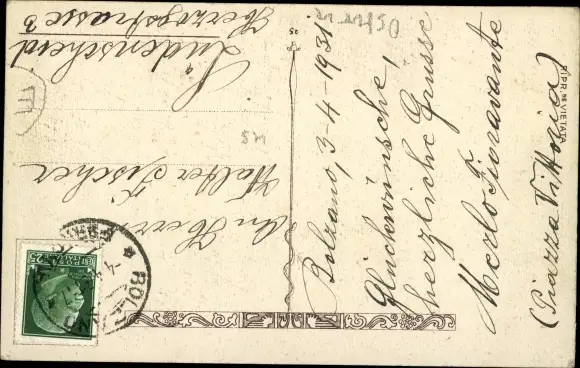 Bolzano, 3-4-1931.
Glückwünsche,
herzliche Grüsse
Merlo Fioravante
(Piazza Vittoria)
An Herrn
Walter Fischer
Lüdenscheid
Herzogstrasse 3
RIPR. VIETATA
25
25